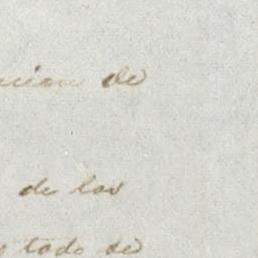 cion de
de los
todo de